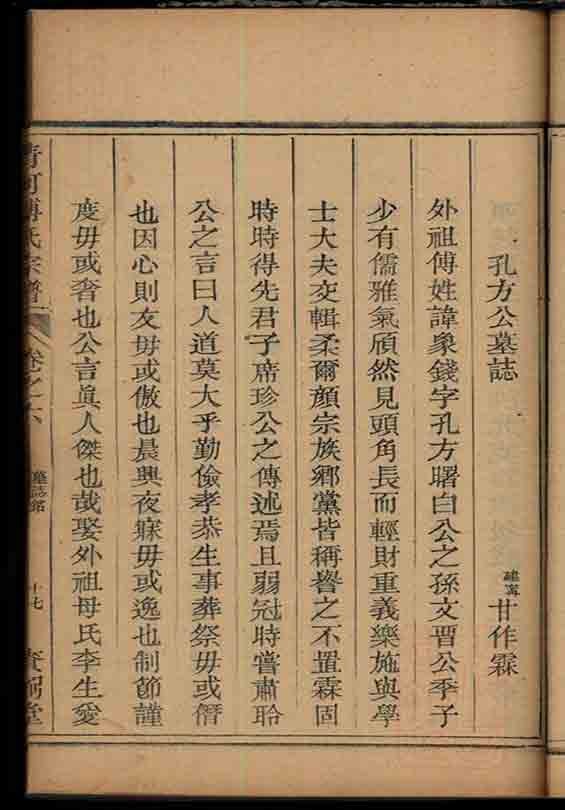 孔方公墓誌 建寧甘作霖
外祖傅姓諱象錢字孔方曙白公之孫文晋公季子
少有儒雅氣頎然見頭角長而輕財重義樂施與學
士大夫交輯柔爾顔宗族鄉黨皆稱譽之不置霖固
時時得先君子席珍公之傳述焉且弱冠時嘗肅聆
公之言曰人道莫大乎勤儉孝恭生事葬祭毋或僭
也因心則友毋或傲也晨興夜寐毋或逸也制節謹
度毋或奢也公言眞人傑也哉娶外祖母氏李生愛
清河傅氏宗譜 卷之六 墓誌銘 十七